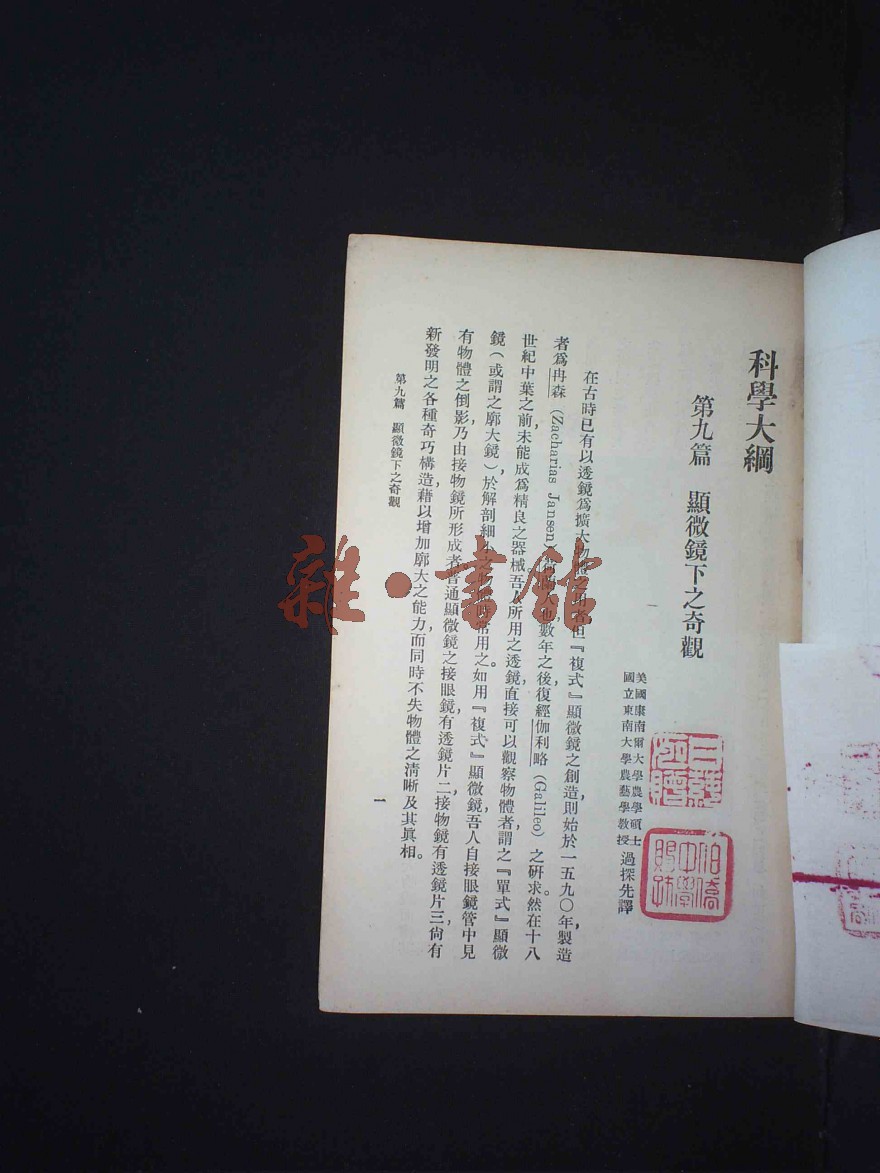 科學大綱
第九篇 顯微鏡下之奇觀
美國康南爾大學農學碩士
國立東南大學農藝學教授
過探先譯
在古時已有以透鏡爲擴大『複式』顯微鏡之創造，則始於一五九〇年，製造
者爲冉森 (Zacharias Jansen) 數年之後，復經伽利略 (Galileo) 之研求。然在十八
世紀中葉之前，未能成爲精良之器械。吾人所用之透鏡，直接可以觀察物體者，謂之『單式』顯微
鏡（或謂之廓大鏡）於解剖細 時常用之。如用『複式』顯微鏡，吾人自接眼鏡管中見
有物體之倒影，乃由接物鏡所形成者。普通顯微鏡之接眼鏡，有透鏡片二，接物鏡有透鏡片三，尙有
新發明之各種奇巧構造，藉以增加廓大之能力，而同時不失物體之清晰及其眞相。
第九篇 顯微鏡下之奇觀
一
雜·書館